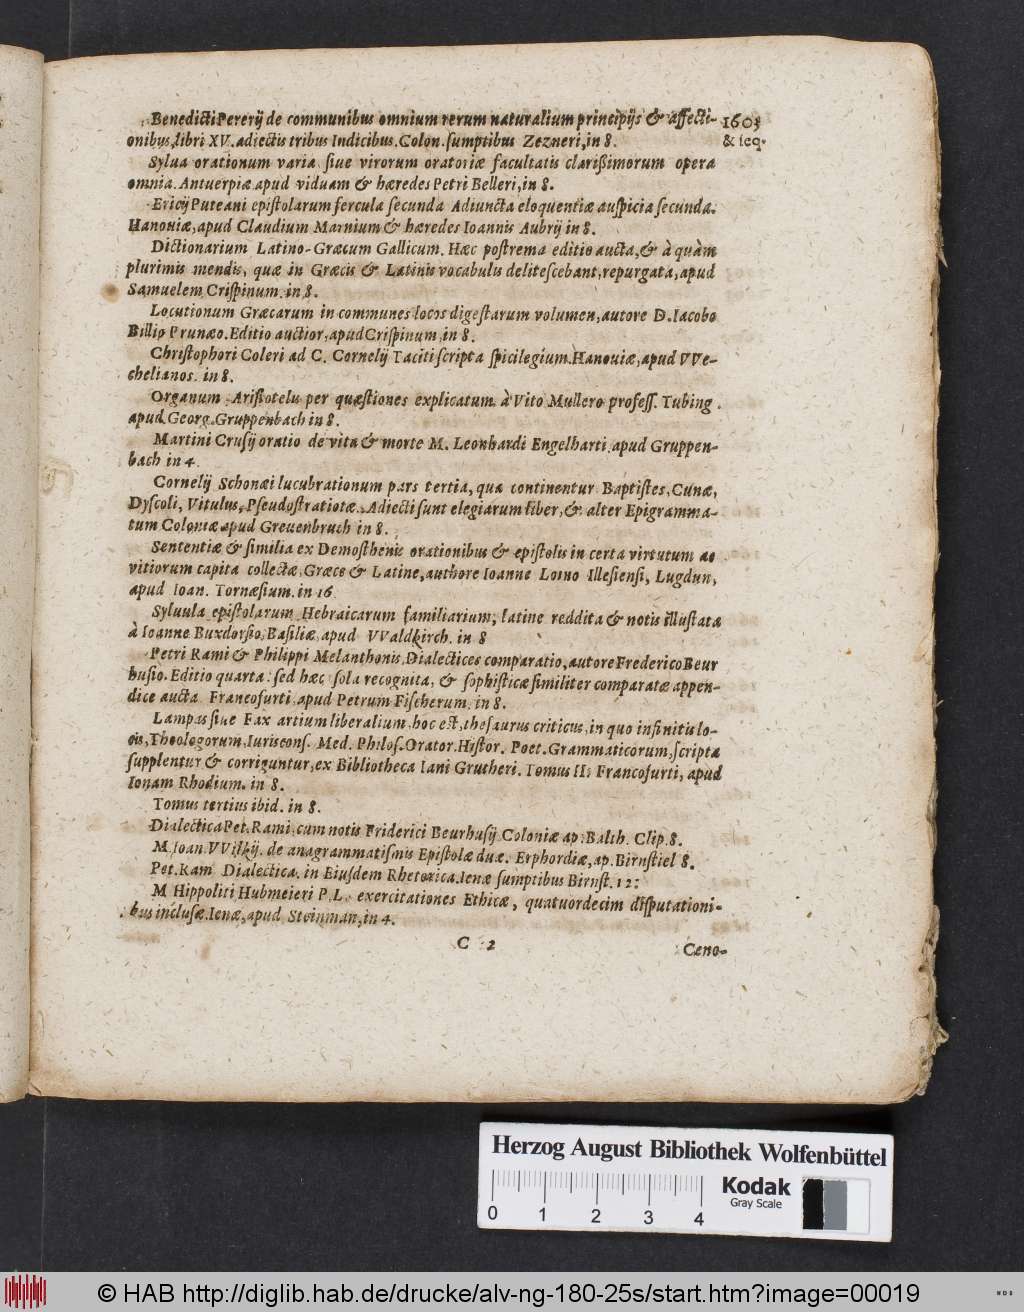 Benedicti Pererij de communibus omnium rerum naturalium principijs & affecti- 1603
onibus, libri XV. adiectis tribus Indicibus. Colon. sumptibus Zezneri, in 8. & seq.
Sylua orationum varia siue virorum oratoriæ facultatis clarißimorum opera
omnia. Antuerpiæ apud viduam & hæredes Petri Belleri, in 8.
Ericij Puteani epistolarum fercula secunda Adiuncta eloquentiæ auspicia secunda.
Hanouiæ, apud Claudium Marnium & hæredes Ioannis Aubrij in 8.
Dictionarium Latino-Græcum Gallicum. Hæc postrema editio aucta, & à quàm
plurimis mendis, quæ in Græcis & Latinis vocabulis delitescebant, repurgata, apud
Samuelem Crispinum. in 8.
Locutionum Græcarum in communes locos digestarum volumen, autore D. Iacobo
Billio Prunæo. Editio auctior, apud Crispinum, in 8.
Christophori Coleri ad C. Cornelij Taciti scripta spicilegium. Hanouiæ, apud VVe-
chelianos. in 8.
Organum Aristotelis per quæstiones explicatum à Vito Mullero profess. Tubing.
apud Georg. Gruppenbach in 8.
Martini Crusij oratio de vita & morte M. Leonhardi Engelharti, apud Gruppen-
bach in 4.
Cornelij Schonæi lucubrationum pars tertia, qua continentur Baptistes, Cunæ,
Dyscoli, Vitulus, Pseudostratiotæ. Adiecti sunt elegiarum liber, & alter Epigramma-
tum Coloniæ apud Greuenbruch in 8.
Sententiæ & similia ex Demosthenis orationibus & epistolis in certa virtutum ac
vitiorum capita collectæ, Græce & Latine, authore Ioanne Loino Illesiensi, Lugdun,
apud Ioan. Tornæsium. in 16
Syluula epistolarum Hebraicarum familiarium, latine reddita & notis illustata
à Ioanne Buxdorfio, Basiliæ, apud VValdkirch. in 8
Petri Rami & Philippi Melanthonis Dialectices comparatio, autore Frederico Beur
husio. Editio quarta: sed hæc sola recognita, & sophisticæ similiter comparatæ appen-
dice aucta Francofurti apud Petrum Fischerum, in 8.
Lampas siue Fax artium liberalium, hoc est, thesaurus criticus, in quo infinitis lo-
cis, Theologorum, Iuriscons. Med. Philos. Orator. Histor. Poet. Grammaticorum, scripta
supplentur & corriguntur, ex Bibliotheca Iani Grutheri. Tomus II. Francofurti, apud
Ionam Rhodium. in 8.
Tomus tertius ibid. in 8.
Dialectica Pet. Rami, cum notis Friderici Beurhusij. Coloniæ ap. Balth. Clip. 8.
M. Ioan. VVilkij. de anagrammatismis Epistolæ duæ. Erphordiæ, ap. Birnstiel 8.
Pet. Ram Dialectica. in Eiusdem Rhetorica. Ienæ sumptibus Birnst. 12:
M Hippoliti Hubmeieri P. L. exercitationes Ethicæ, quatuordecim disputationi-
bus inclusæ. Ienæ, apud Steinman, in 4.
C 2 Ceno-
Herzog August Bibliothek Wolfenbüttel
0 1 2 3 4
Kodak
Gray Scale
© HAB http://diglib.hab.de/drucke/alv-ng-180-25s/start.htm?image=00019